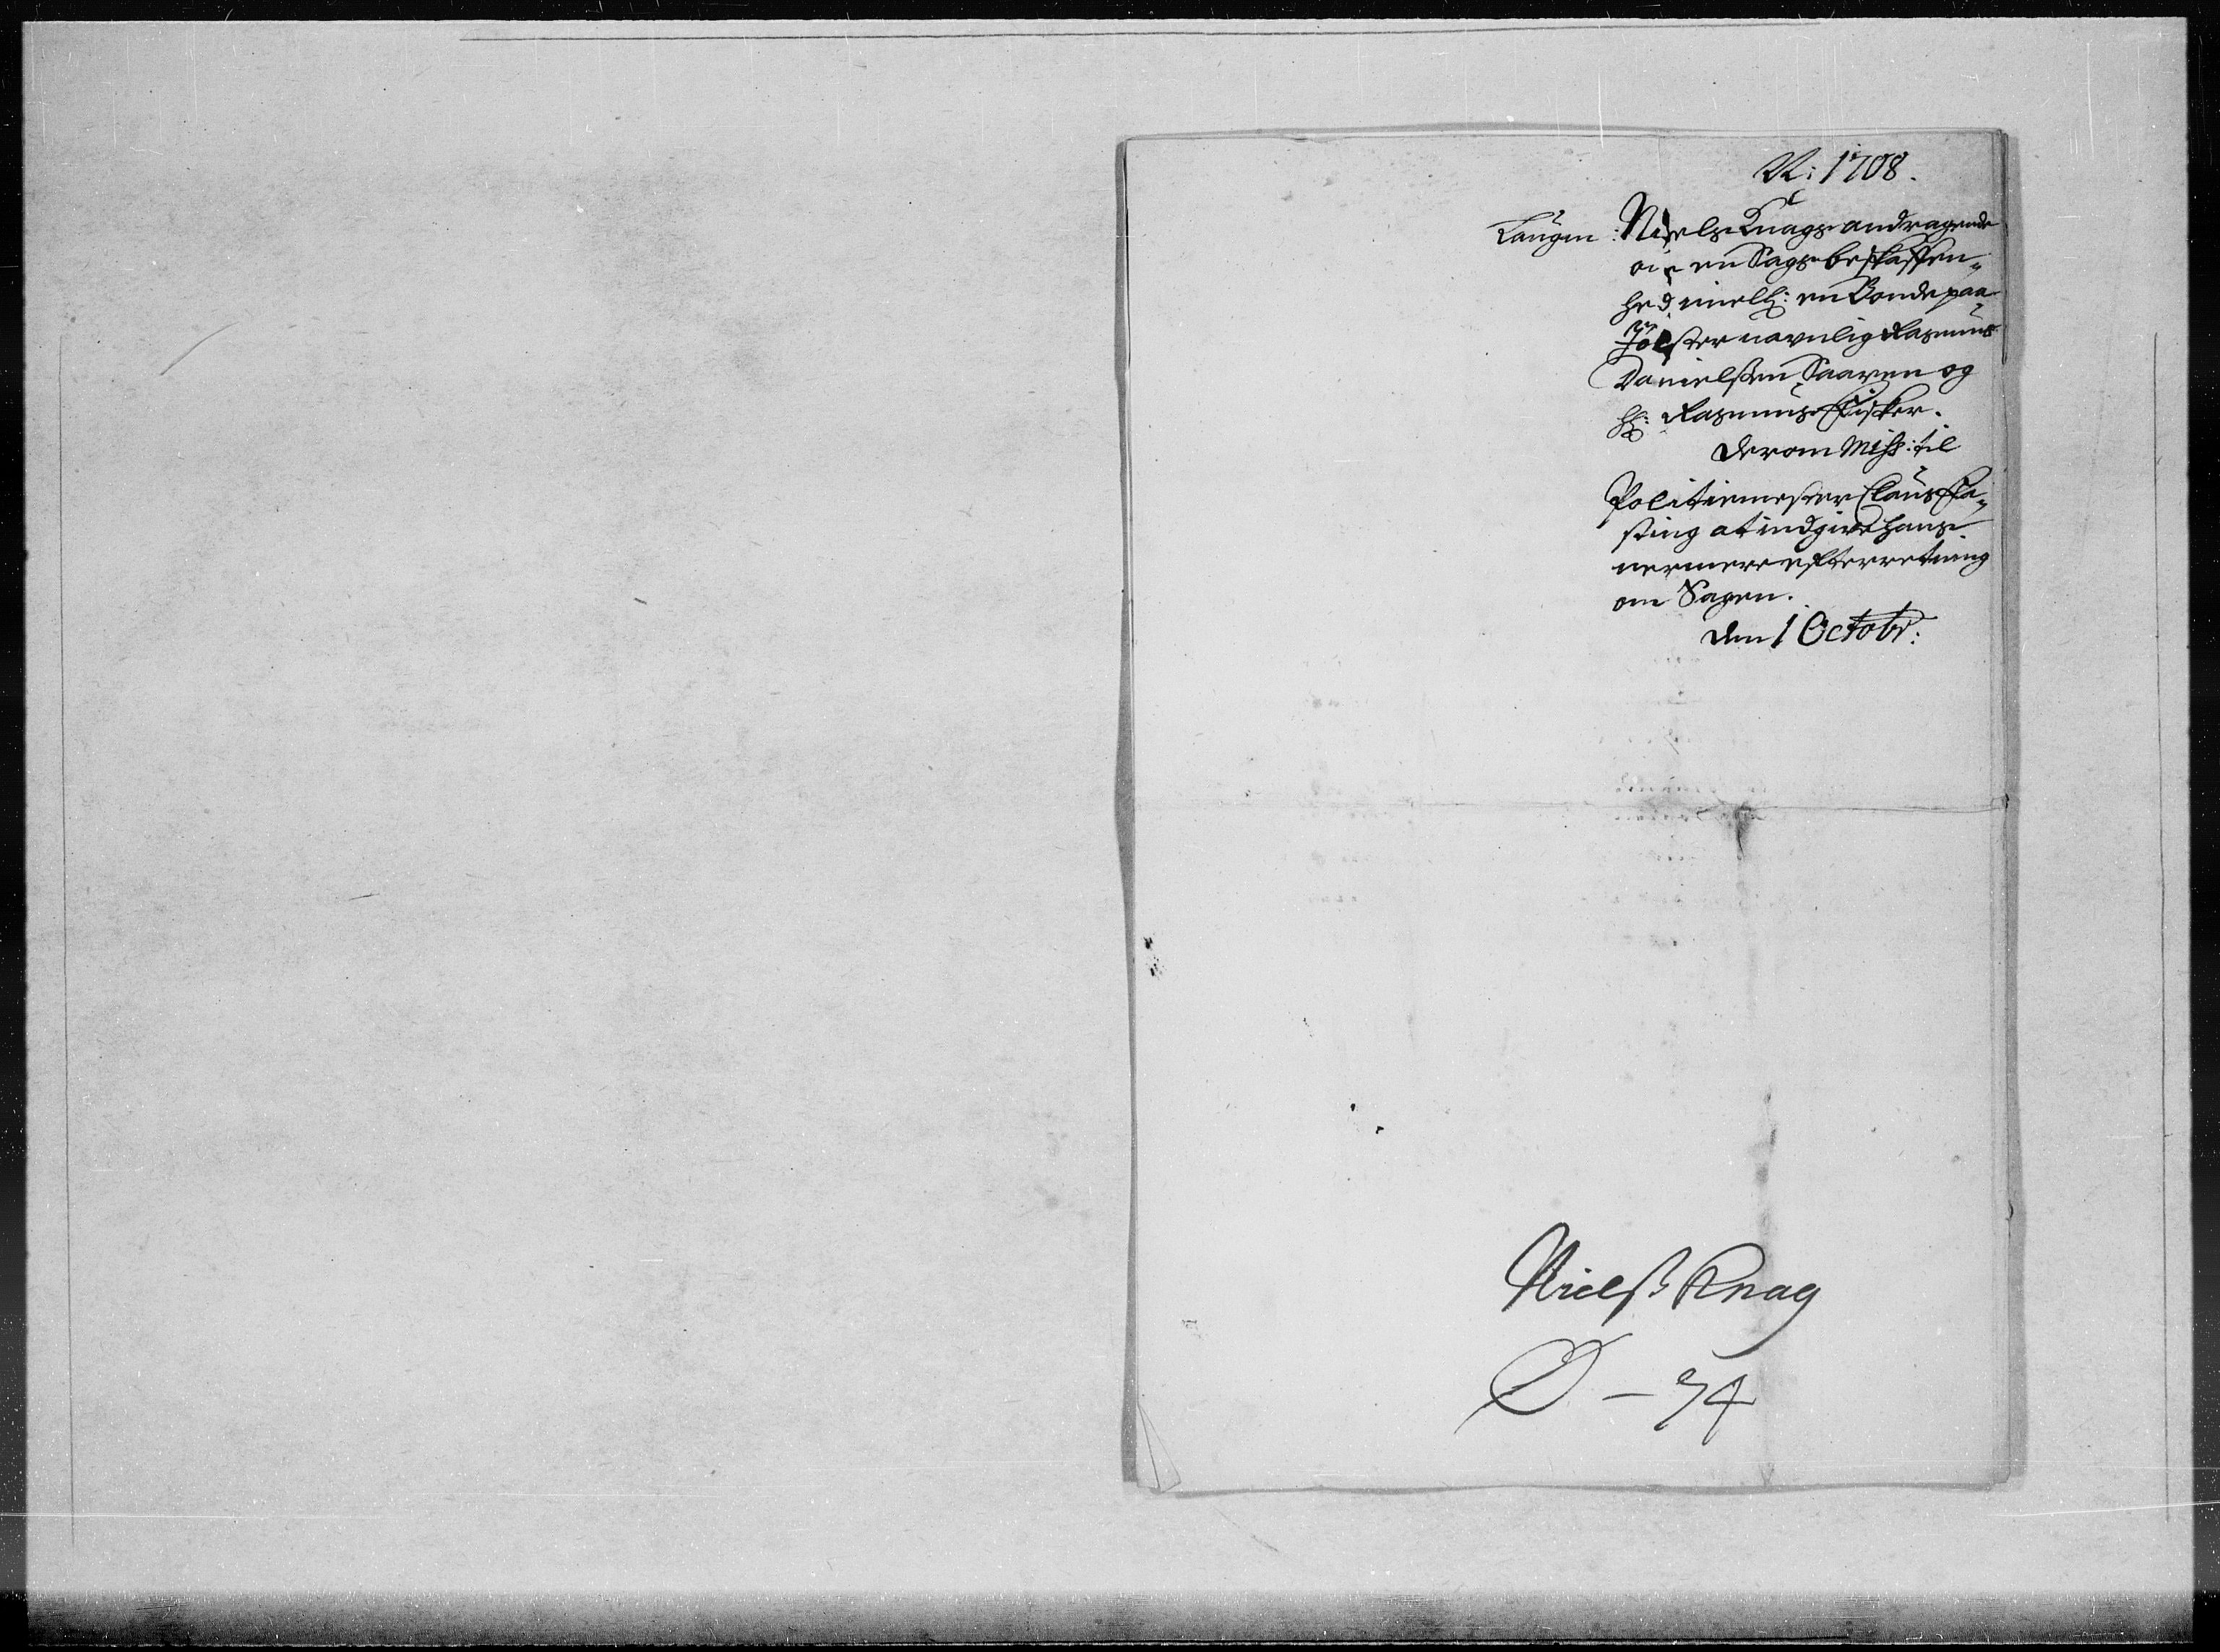 N: 1708.
Laugm: Niels Knags andragende
om en Sags beskaffen-
hed imell: en Bonde paa
Jölster navnlig Rasmus
Danielssen Saaren og
H: Rasmus Fisker.
derom Miss: til
Politiemester Claus Fa-
sting at indgive hans
nermere efterretning
om Sagen.
den 1 Octobr:
Nielss Knag
D - 74